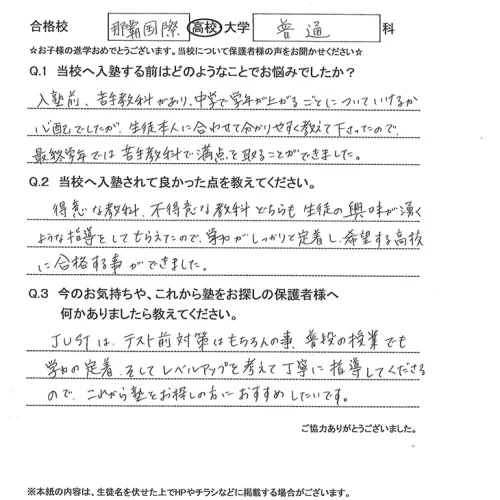 合格校 那覇国際 高校 大学 普通 科
☆お子様の進学おめでとうございます。当校について保護者様の声をお聞かせください☆
Q.1 当校へ入塾する前はどのようなことでお悩みでしたか？
入塾前、苦手教科があり、中学で学年が上がるごとについていけるか
心配でしたが、生徒本人に合わせて分かりやすく教えて下さったので、
最終学年では苦手教科で満点を取ることができました。
Q.2 当校へ入塾されて良かった点を教えてください。
得意な教科、不得意な教科どちらも生徒の興味が湧く
ような指導をしてもらえたので、学力がしっかりと定着し、希望する高校
に合格する事ができました。
Q.3 今のお気持ちや、これから塾をお探しの保護者様へ
何かありましたら教えてください。
JUSTは、テスト前対策はもちろんの事、普段の授業でも
学力の定着、そしてレベルアップを考えて丁寧に指導してくださる
ので、これから塾をお探しの方におすすめしたいです。
ご協力ありがとうございました。
※本紙の内容は、生徒名を伏せた上でHPやチラシなどに掲載する場合がございます。